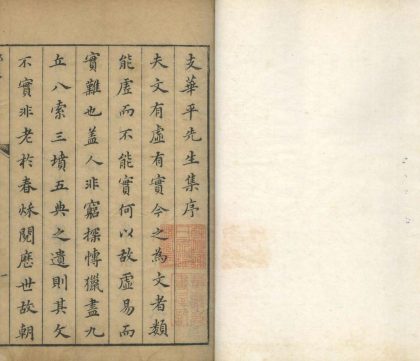 支華平先生集序
夫文有虛有實今之為文者類
能虛而不能實何以故虛易而
實難也盖人非窮探慱獵盡九
丘八索三墳五典之遺則其文
不實非老於春秌閱歷世故朝